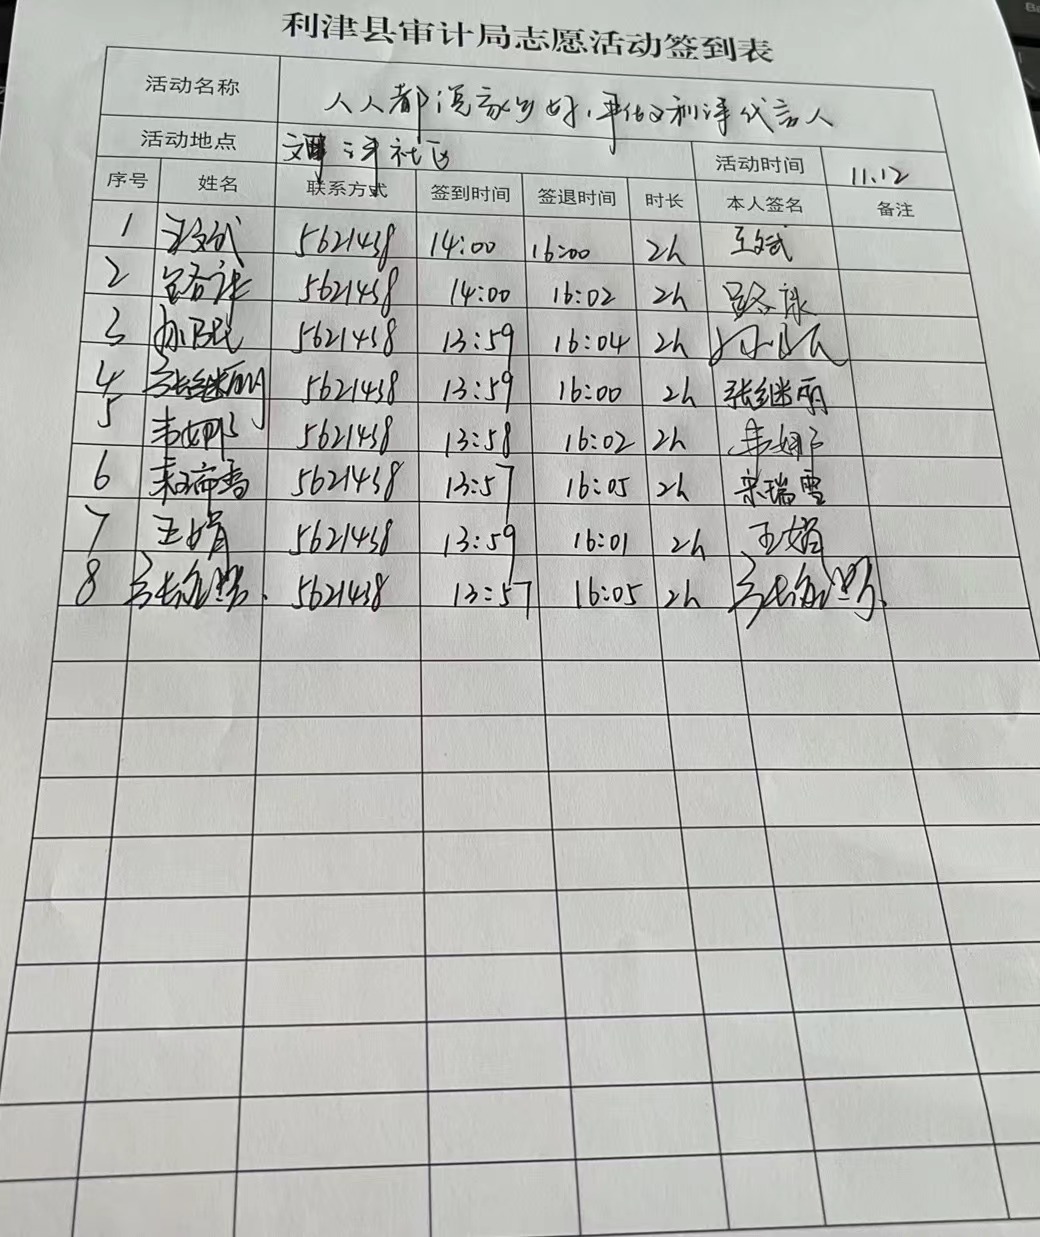 利津县审计局志愿活动签到表
活动名称 人人都说家乡好,争做利津代言人
活动地点 津社区 活动时间 11.12
序号 姓名 联系方式 签到时间 签退时间 时长 本人签名 备注
1 5621438 14:00 16:00 2h 王斌
2 5621438 14:00 16:02 2h
3 5621438 13:59 16:04 2h
4 张继丽 5621438 13:59 16:00 2h 张继丽
5 韦娜 5621438 13:58 16:02 2h 韦娜
6 宋瑞雪 5621438 13:57 16:05 2h 宋瑞雪
7 王娟 5621438 13:59 16:01 2h 王娟
8 5621438 13:57 16:05 2h